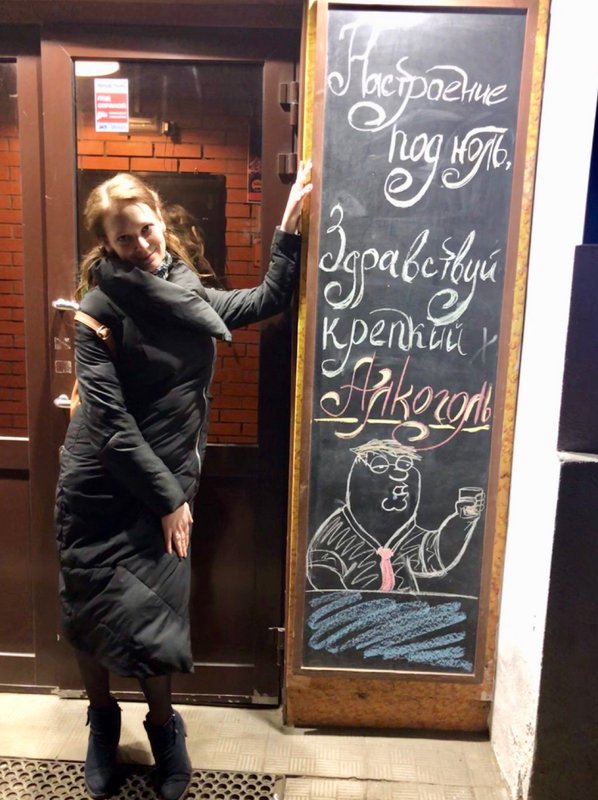 Настроение
под ноль,
Здравствуй
крепкий
Алкоголь